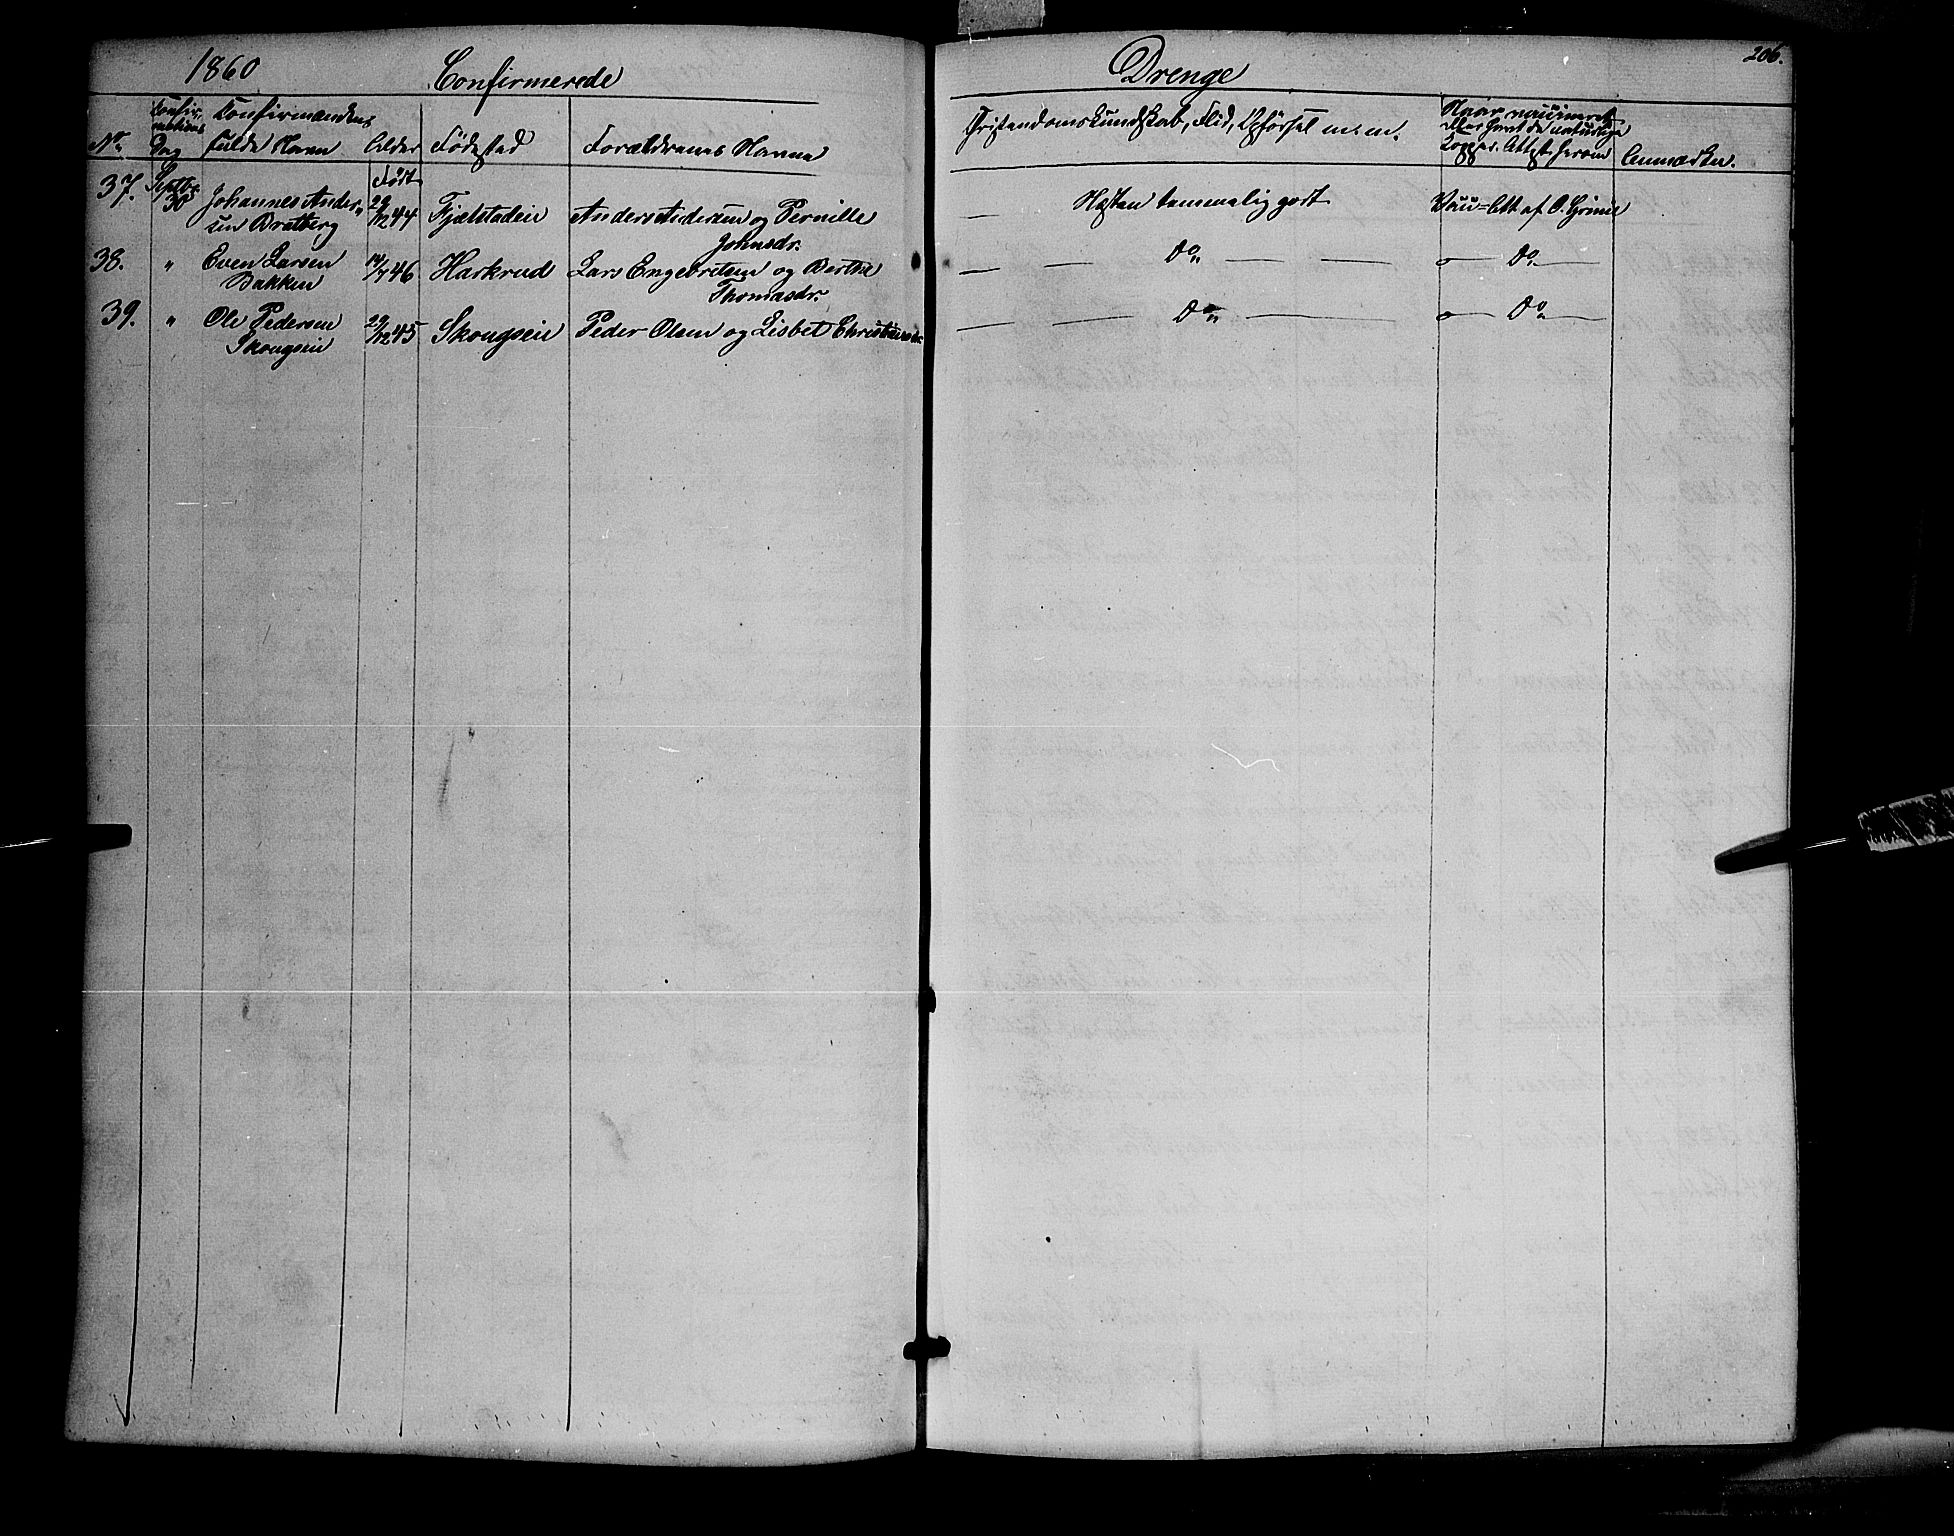 1860 Confirmerede Drenge 206.
No. Confirmations Dag Confirmandens fulde Navn Alder Fødested Forældrenes Navne Christendomskundskab, Flid, Opførsel m. m. Naar vaccineret eller havt de naturlige Kopper. Attest herom Anmærkn.
Født
37. Septbr. 30 Johannes Anders- 29/12 44 Fjælstadeie Anders Andersen og Pernille — Næsten temmelig godt Vac= Att af O. Grimie
sen Bratberg Johnsdr.
38. " Even Larsen 14/7 46 Harkrud Lars Engebretsen og Berthe — — Do — — — Do —
Bakken Thomasdr.
39. " Ole Pedersen 29/12 45 Skougseie Peder Olsen og Lisbet Christiansdr. — — Do — — Do —
Skougseie